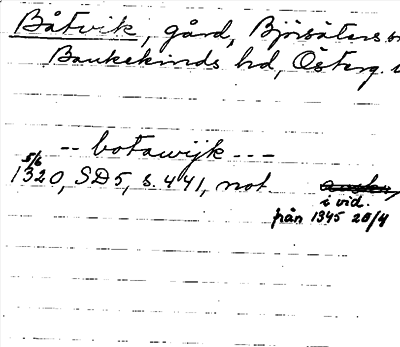 Båtvik, gård, Björsäters sn
Bankekinds hd, Österg.
-- botawijk ---
5/6
1320, SD5, s. 441, not
i vid.
från 1345 20/4